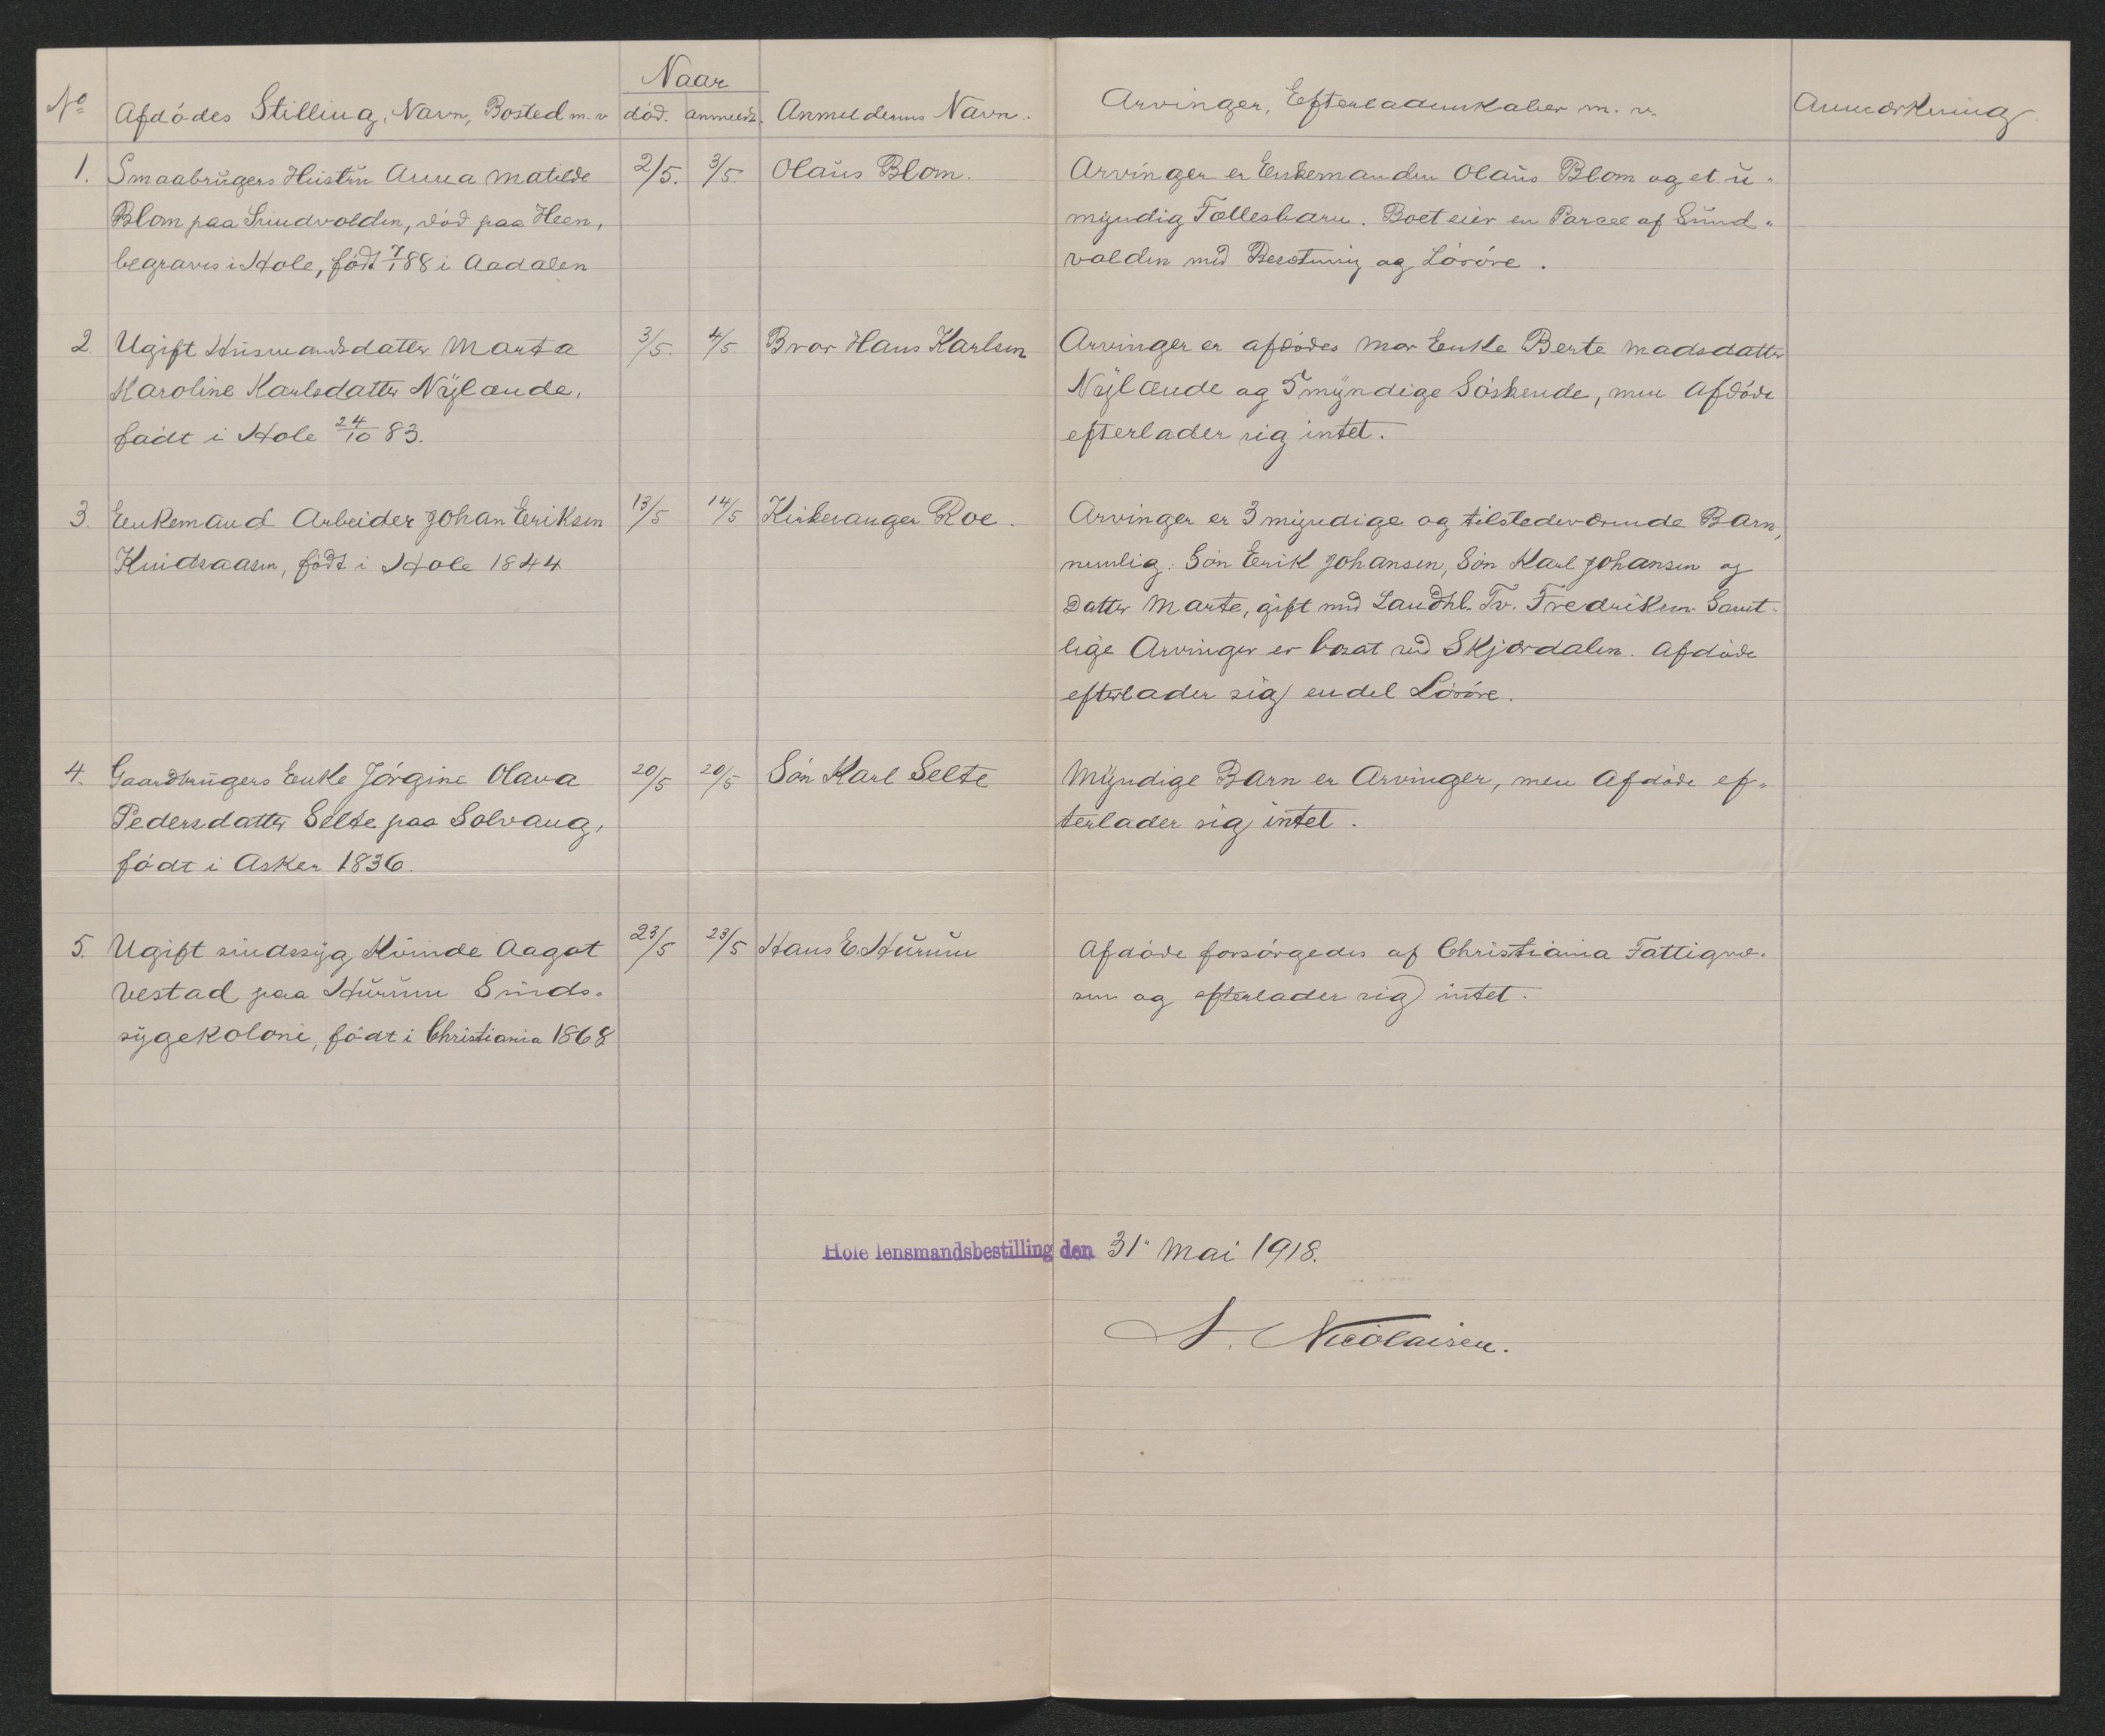 Naar
No Afdødes Stilling, Navn, Bosted m. v død. anmeldt. Anmelderens Navn. Arvinger, Efterladenskaber m. v. Anmærkning
1. Smaabrugers Hustru Anna Matilde 2/5. 3/5. Olaus Blom. Arvinger er Enkemanden Olaus Blom og et u-
Blom paa Sundvolden, død paa Heen, myndig Fællesbarn. Boet eier en Parcel af Sund-
begraves i Hole, født 7/1 88 i Aadalen volden med Besætning og Løsøre.
2. Ugift Husmandsdatter Marta 3/5. 4/5 Bror Hans Karlsen Arvinger er afdødes Mor Enke Berte Madsdatter
Karoline Karlsdatter Nylænde, Nylænde og 5 myndige Søskende, men Afdøde
født i Hole 24/10 83. efterlader sig intet.
3. Enkemand Arbeider Johan Eriksen 13/5 14/5 Kirkesanger Roe. Arvinger er 3 myndige og tilstedeværende Barn,
født i Hole 1844 nemlig: Søn Erik Johansen, Søn Karl Johansen og
Datter Marte, gift med Landhl. Tv. Fredriksen. Samt-
lige Arvinger er bosat ved Skjærdalen. Afdøde
efterlader sig endel Løsøre.
4. Gaardbrugers Enke Jørgine Olava 20/5 20/5 Søn Karl Selte Myndige Barn er Arvinger, men Afdøde ef-
Pedersdatter Selte paa Solvang, terlader sig intet.
født i Asker 1836.
5. Ugift sindssyg Kvinde Aagot 23/5 23/5 Hans E. Hurum Afdøde forsørgedes af Christiania Fattigvæ-
Vestad paa Hurum Sinds- sen og efterlader sig intet.
sygekoloni, født i Christiania 1868
Hole lensmandsbestilling den 31" Mai 1918.
Nicolaisen.